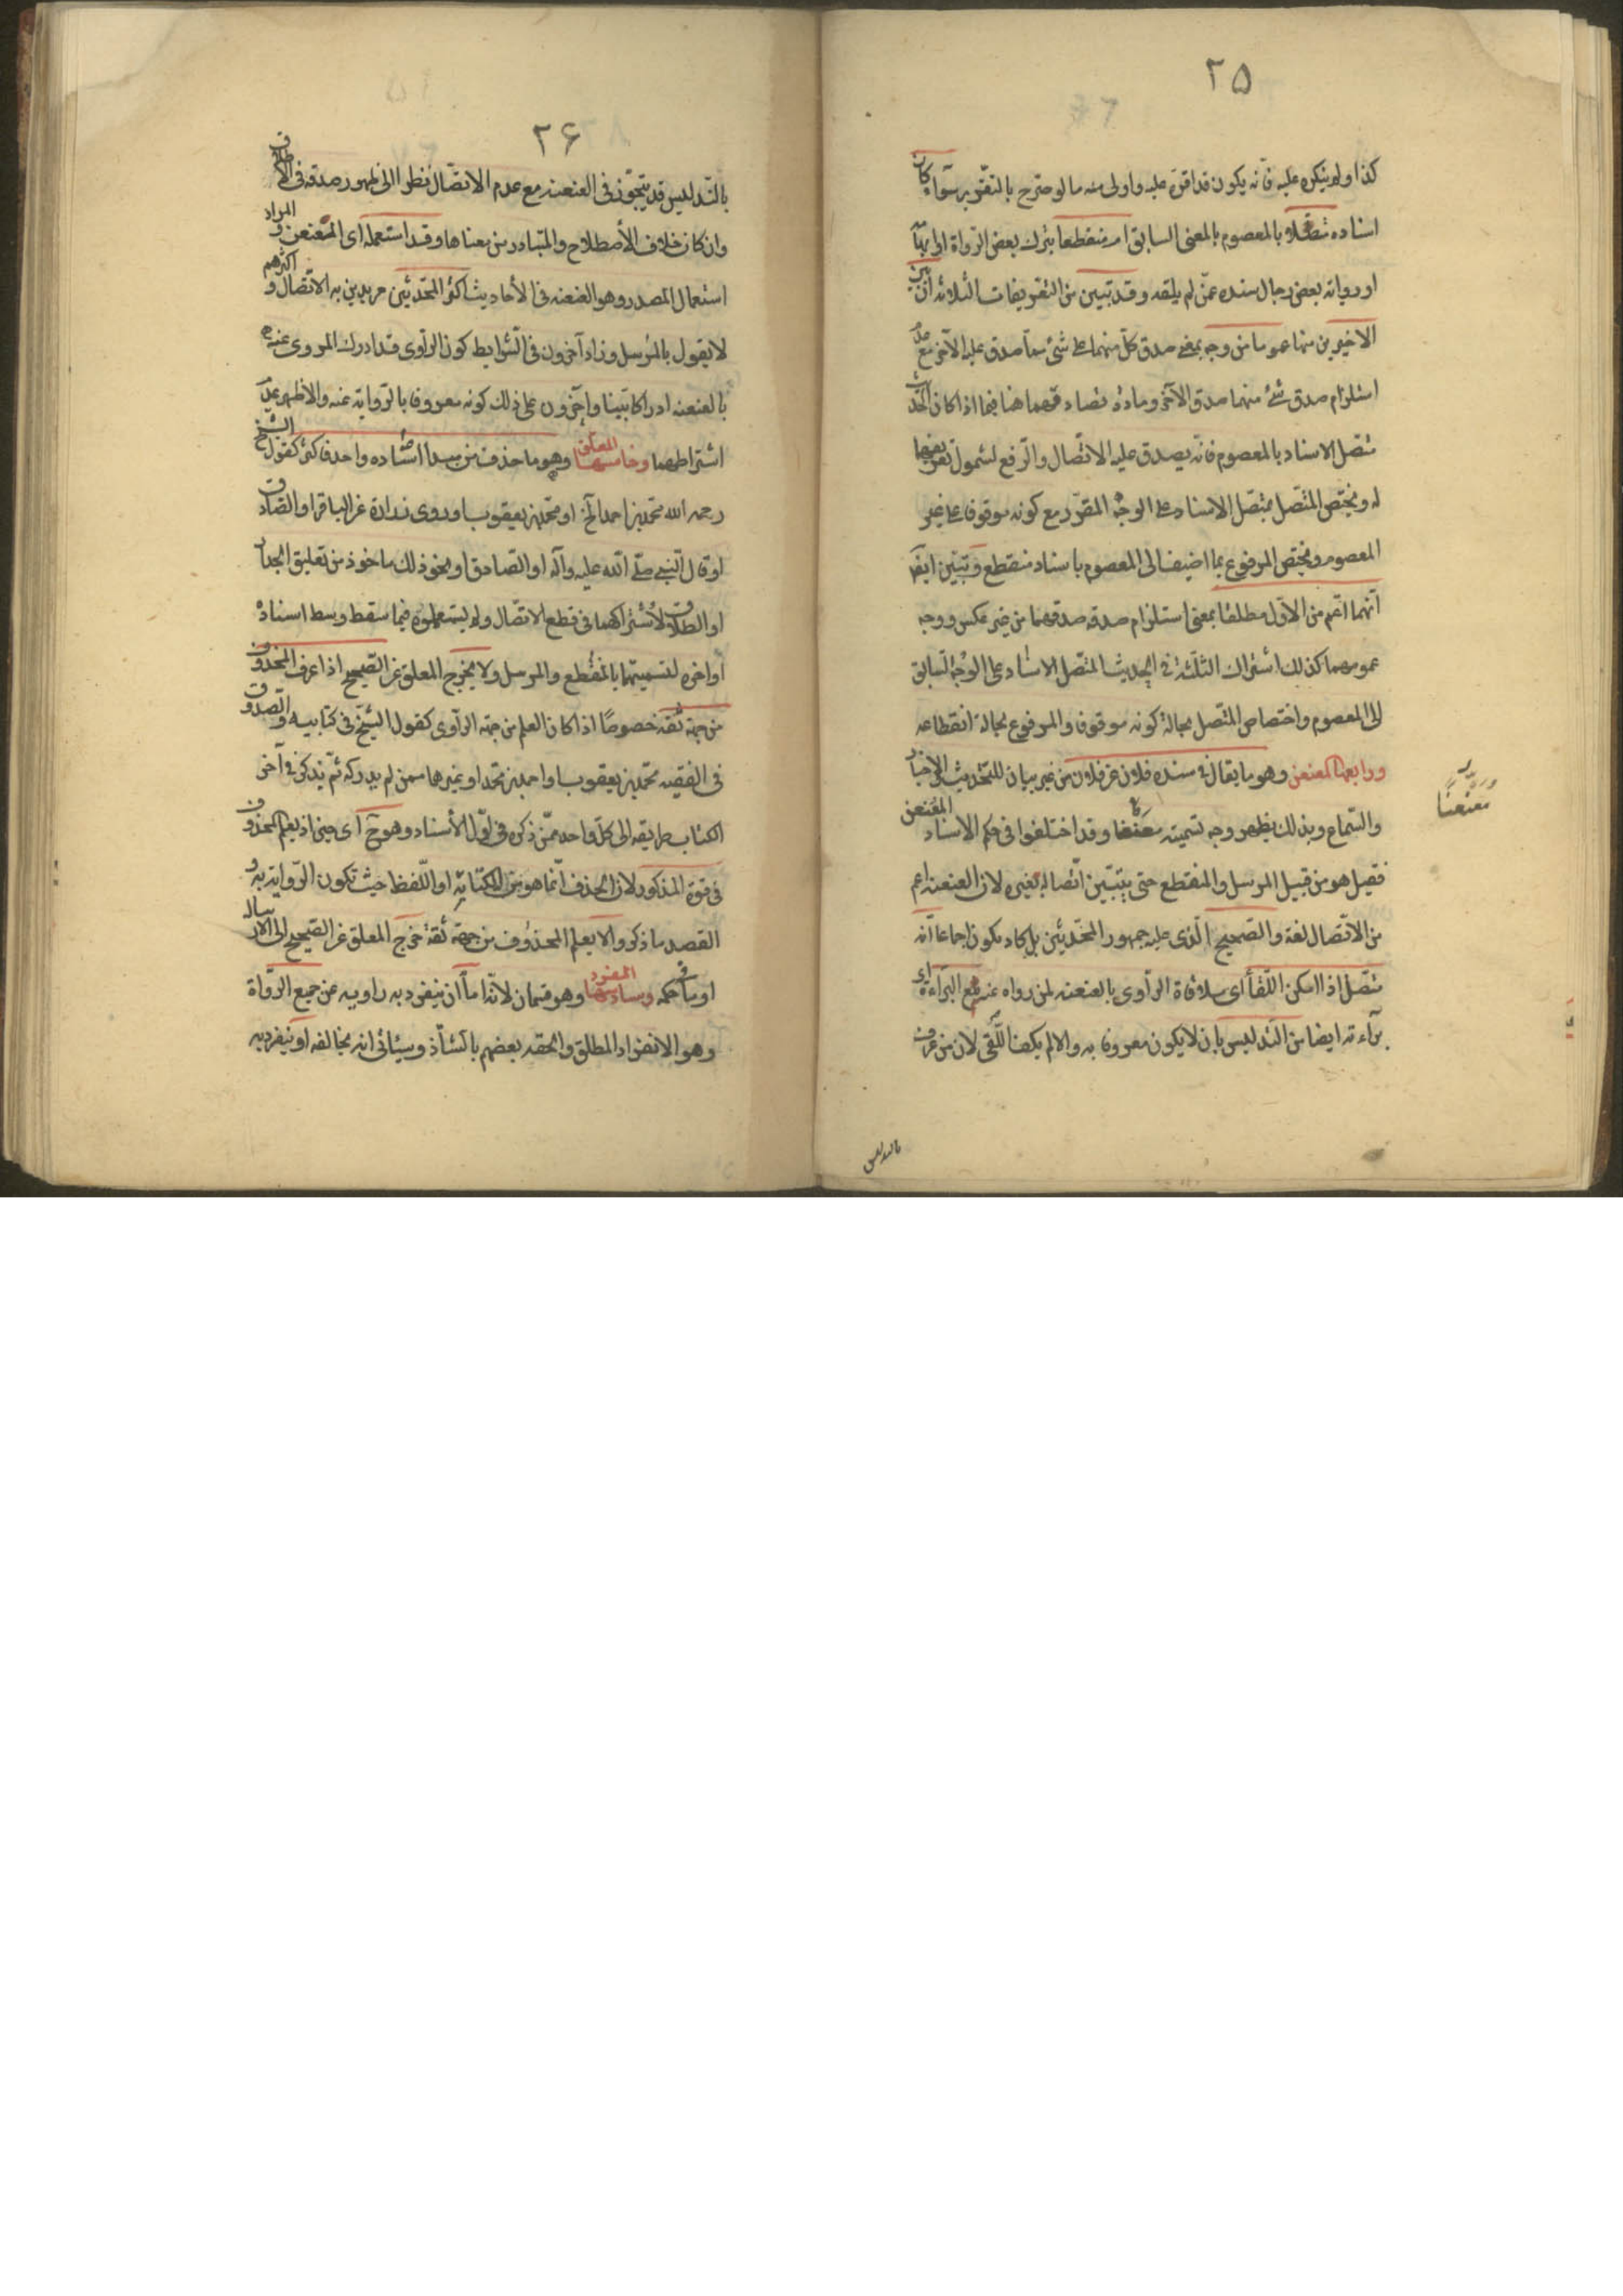 ٢٥
كذا ولم ينكره عليه فانه يكون قد اقره عليه واولى منه ما لو صرح بالتقرير سوآء كان
اسناده متصلا بالمعصوم بالمعنى السابق ام منقطعا بترك بعض الرواة او ابهامه
او رواية بعض رجال سنده عمن لم يلقه وقد تبين من التعريفات الثلاثة ان بين
الاخيرين منها عموما من وجه بمعنى صدق كل منهما على شئ مما صدق عليه الآخر مع عدم
استلزام صدق شئ منهما صدق الآخر ومادة تصادقهما هنا فيما اذا كان الحديث
متصل الاسناد بالمعصوم فانه يصدق عليه الاتصال والرفع لشمول تعريفهما
له ويختص المتصل بمتصل الاسناد على الوجه المقرر مع كونه موقوفا على غير
المعصوم ويختص المرفوع بما اضيف الى المعصوم باسناد منقطع وتبين ايضا
انهما اعم من الاول مطلقا بمعنى استلزام صدقه صدقهما من غير عكس ووجه
عمومهما كذلك اشتراك الثلثة في الحديث المتصل الاسناد على الوجه السابق
الى المعصوم واختصاص المتصل بحالة كونه موقوفا والمرفوع بحالة انقطاعه
ورابعها المعنعن وهو ما يقال في سنده فلان عن فلان من غير بيان للتحديث والاخبار
والسماع وبذلك يظهر وجه تسميته معنعنا وقد اختلفوا في حكم الاسناد المعنعن
فقيل هو من قبيل المرسل والمنقطع حتى يتبين اتصاله بغيره لان العنعنة اعم
من الاتصال لغة والصحيح الذى عليه جمهور المحدثين بل كاد يكون اجماعا انه
متصل اذا امكن اللقأ اى ملاقاة الراوى بالعنعنة لمن رواه عنه مع البراءة اى
برآءته ايضا من التدليس بان لا يكون معروفا به والا لم يكف اللقى لان من عرف
معنعنا
بالتدليس
٢۶
بالتدليس قد يتجوز في العنعنة مع عدم الاتصال نظرا الى ظهور صدقه في الاطلاق
وان كان خلاف الأصطلاح والمتبادر من معناها وقد استعمله اى المعنعن والمراد
استعمال المصدر وهو العنعنة في الأحاديث اكثر المحدثين مريدين به الاتصال واكثرهم
لا يقول بالمرسل وزاد آخرون في الشرايط كون الراوى قد ادرك المروى عنه
بالعنعنة ادراكا بينا وآخرون على ذلك كونه معروفا بالرواية عنه والاظهر عدم
اشتراطهما وخامسها المعلق وهو ما حذف من مبدأ اسناده واحد فاكثر كقول الشيخ
رحمه الله محمد بن احمد الخ او محمد بن يعقوب او روى زرارة عن الباقر او الصادق
او قال النبي صلى الله عليه وآله او الصادق او نحو ذلك ماخوذ من تعليق الجدار
او الطلاق لاشتراكهما في قطع الاتصال ولم يستعملوه فيما سقط وسط اسناده
او اخره لتسميتهما بالمنقطع والمرسل ولا يخرج المعلق عن الصحيح اذا عرف المحذوف
من جهة ثقة خصوصا اذا كان العلم من جهة الراوى كقول الشيخ في كتابيه والصدوق
في الفقيه محمد بن يعقوب او احمد بن محمد او غيرهما ممن لم يدركه ثم يذكر في آخر
الكتاب طريقه الى كل واحد ممن ذكره في اول الأسناد وهو ح اى حين اذ يعلم المحذوف
في قوة المذكور لان الحذف انما هو من الكتابة او اللفظ حيث تكون الرواية به و
القصد ما ذكر والا يعلم المحذوف من جهة ثقة خرج المعلق عن الصحيح الى الارسال
او ما في حكمه وسادسها المفرد وهو قسمان لانه اما ان ينفرد به راويه عن جميع الرواة
وهو الانفراد المطلق والحقه بعضهم بالشاذ وسيأتى انه يخالفه او ينفرد به